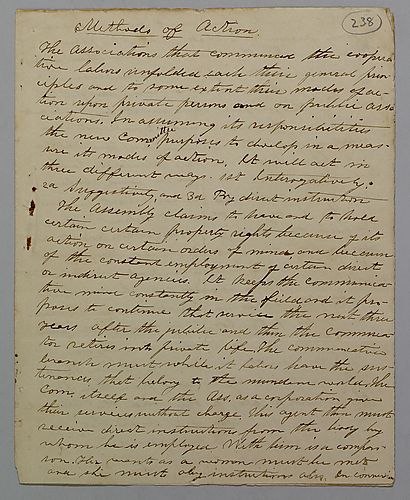 238
Methods of Action
The Associations that commenced the coopera
tive labors unfolded each their general prin
ciples and to some extent their modes of ac
tion upon private persons and on public asso
ciations. In assuming its responsibilities
the new Com'ttee purposes to develop in a meas
ure its modes of action. It will act in
three different ways. 1st Interogatively.
2d Suggestively, and 3d By direct instruction
The Assembly claims to have and to hold
certain certain property rights because of its
action on certain orders of mind and because
of the constant employment of certain direct
or indirect agencies. It keeps the communica
tive mind constantly in the field and it pro
poses to continue that service the next three
years after the public and then the commu
tor retires into private life. The communicative
branch must while it labors have the sus
tenances that belong to the mundane world. The
Com itself and the Ass. as a corporation gives
their services without charge. This agent then must
receive direct instruction from the body by
whom he is employed. With him is a compan
ion. Her wants as a woman must be met
and she must obey instructions also.